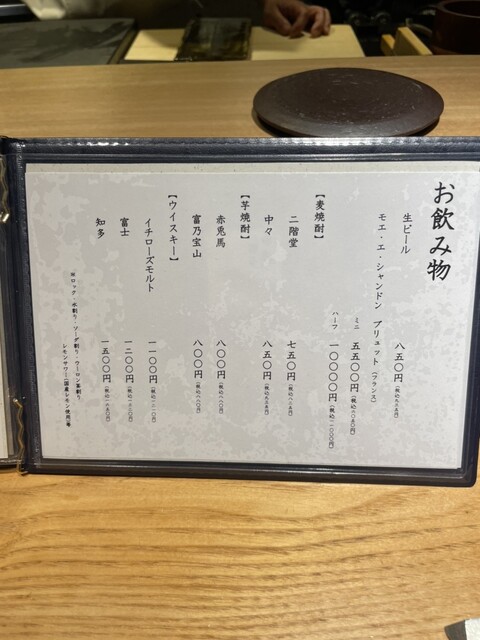 お飲み物
生ビール 八五〇円(税込九三五円)
モエ・エ・シャンドン ブリュット(フランス)
ミニ 五五〇〇円(税込六〇五〇円)
ハーフ 一〇〇〇〇円(税込一一〇〇〇円)
【麦焼酎】
二階堂 七五〇円(税込八二五円)
中々 八五〇円(税込九三五円)
【芋焼酎】
赤兎馬 八〇〇円(税込八八〇円)
富乃宝山 八〇〇円(税込八八〇円)
【ウイスキー】
イチローズモルト 一一〇〇円(税込一二一〇円)
富士 一二〇〇円(税込一三二〇円)
知多 一五〇〇円(税込一六五〇円)
※ロック・水割り・ソーダ割り・ウーロン茶割り
レモンサワー(国産レモン使用)等